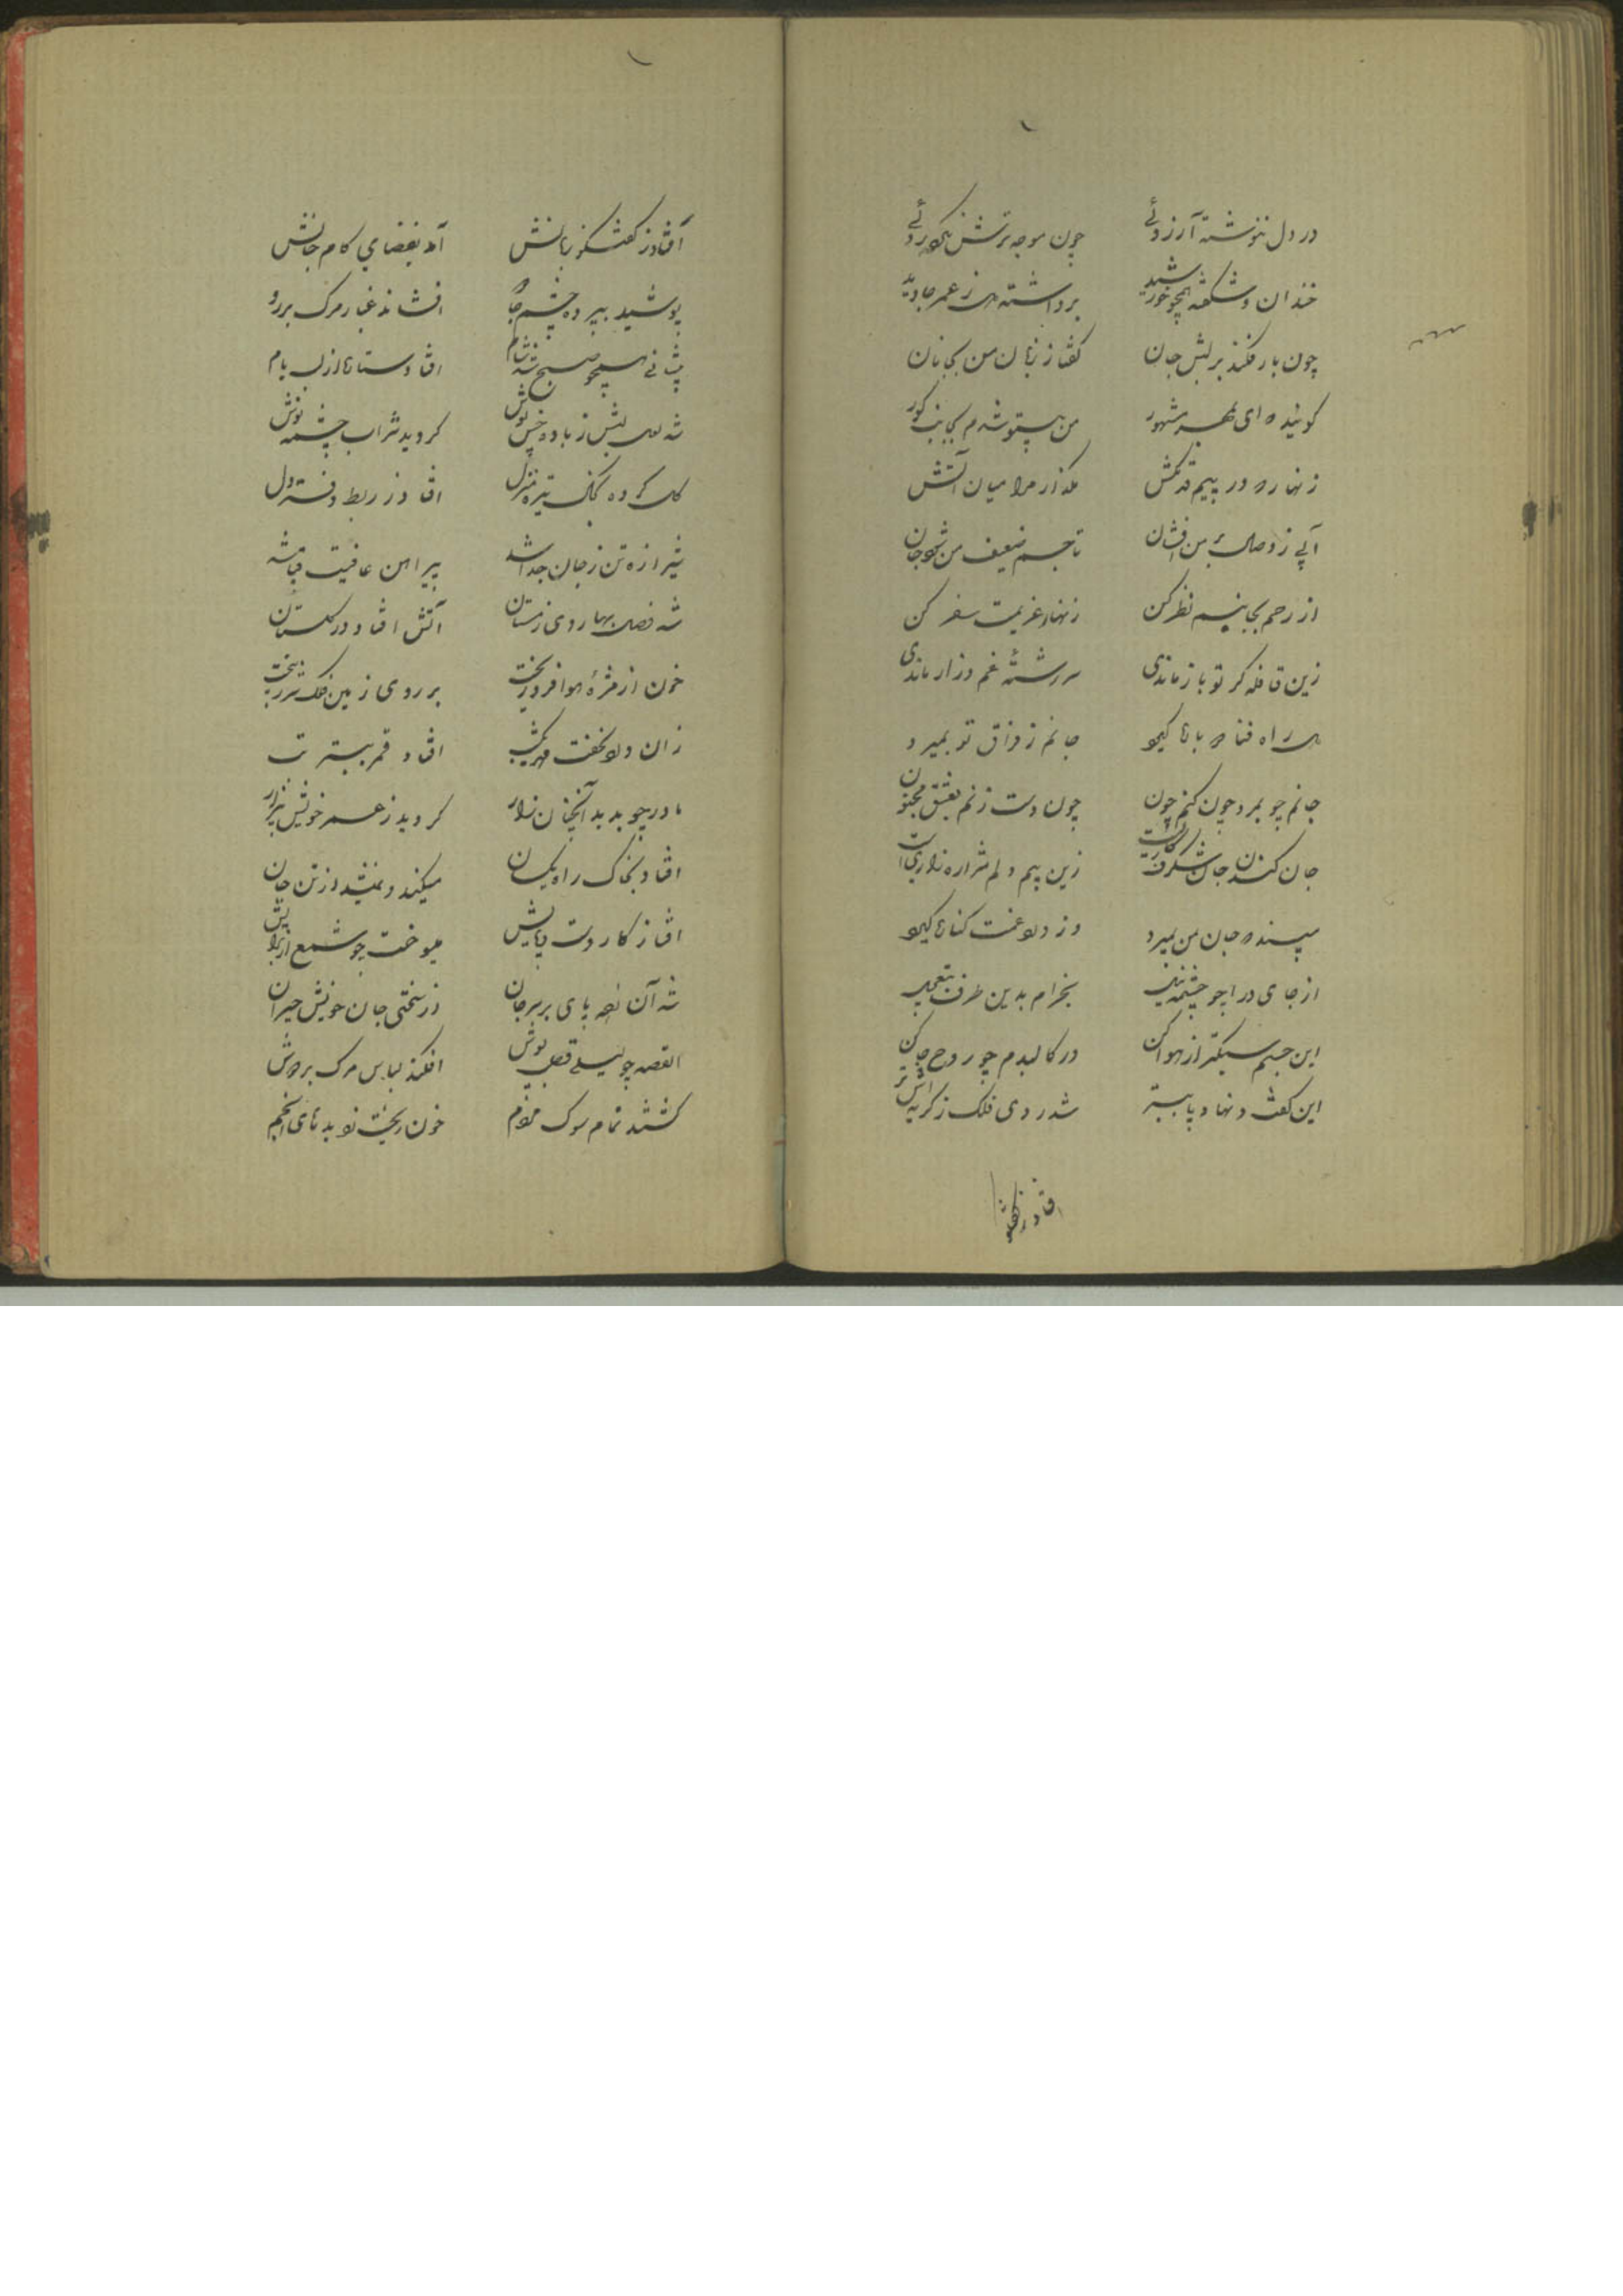 در دل ننوشته آرزوئی چون موجه ترش
خندان و شکفته همچو خورشید برداشته دل ز عمر جاوید
چون بار فکند بر لبش جان گفتا ز زبان من بجانان
من بیتو شدم بجانب گور
زنهار در پیم قدمکش مگذار مرا میان آتش
آبی ز وصال بر من افشان تا جسم ضعیف من شود جان
از رحم بجانبم نظر کن زنهار عزیمت سفر کن
زین قافله گر تو باز ماندی سررشته غم دراز ماندی
راه فنا جانم ز فراق تو بمیرد
جانم چو بمرد چون کنم چون چون دست زنم بعشق مجنون
جان کندن جان شگرف کاریست زین بیم دلم شراره زاریست
مپسند که جان من بمیرد وز دل غمت کناره گیرد
از جای درا چو چشمه بخرام بدین طرف بتعجیل
این جسم سبکتر از هوا کن در کالبدم چو روح جا کن
این گفت و نهاد پا ببستر شد روی فلک ز گریه اش تر
افتاد ز گفتگو
افتاد ز گفتگو زبانش آمد بفضای کام جانش
پوشید بپرده چشم جادو افشاند غبار مرگ بر رو
پیشانی همچو صبح شد شام افتاد ستاره از لب بام
شد لعل لبش ز باده خس پوش گردید شراب چشمه نوش
گل کرده بخاک تیره منزل افتاد ز ربط دفتر دل
شیرازه تن ز جان جدا شد پیراهن عافیت قبا شد
شد فصل بهار دی زمستان آتش افتاد در گلستان
خون از مژه هوا فرو ریخت بر روی زمین فلک
زان افتاد قمر ببستر تب
مادر چو بدید آنچنان زار گردید ز عمر خویش بیزار
افتاد بخاک راه یکسان میکند و نمیشد از تن جان
افتاد ز کار دست و پایش میسوخت چو شمع از برایش
شد آن پای بر سر جان از سختی جان خویش حیران
القصه چو لیلی قصب پوش افکند لباس مرگ بر دوش
گشتند تمام سوک مردم خون ریخت ز دیدهای انجم